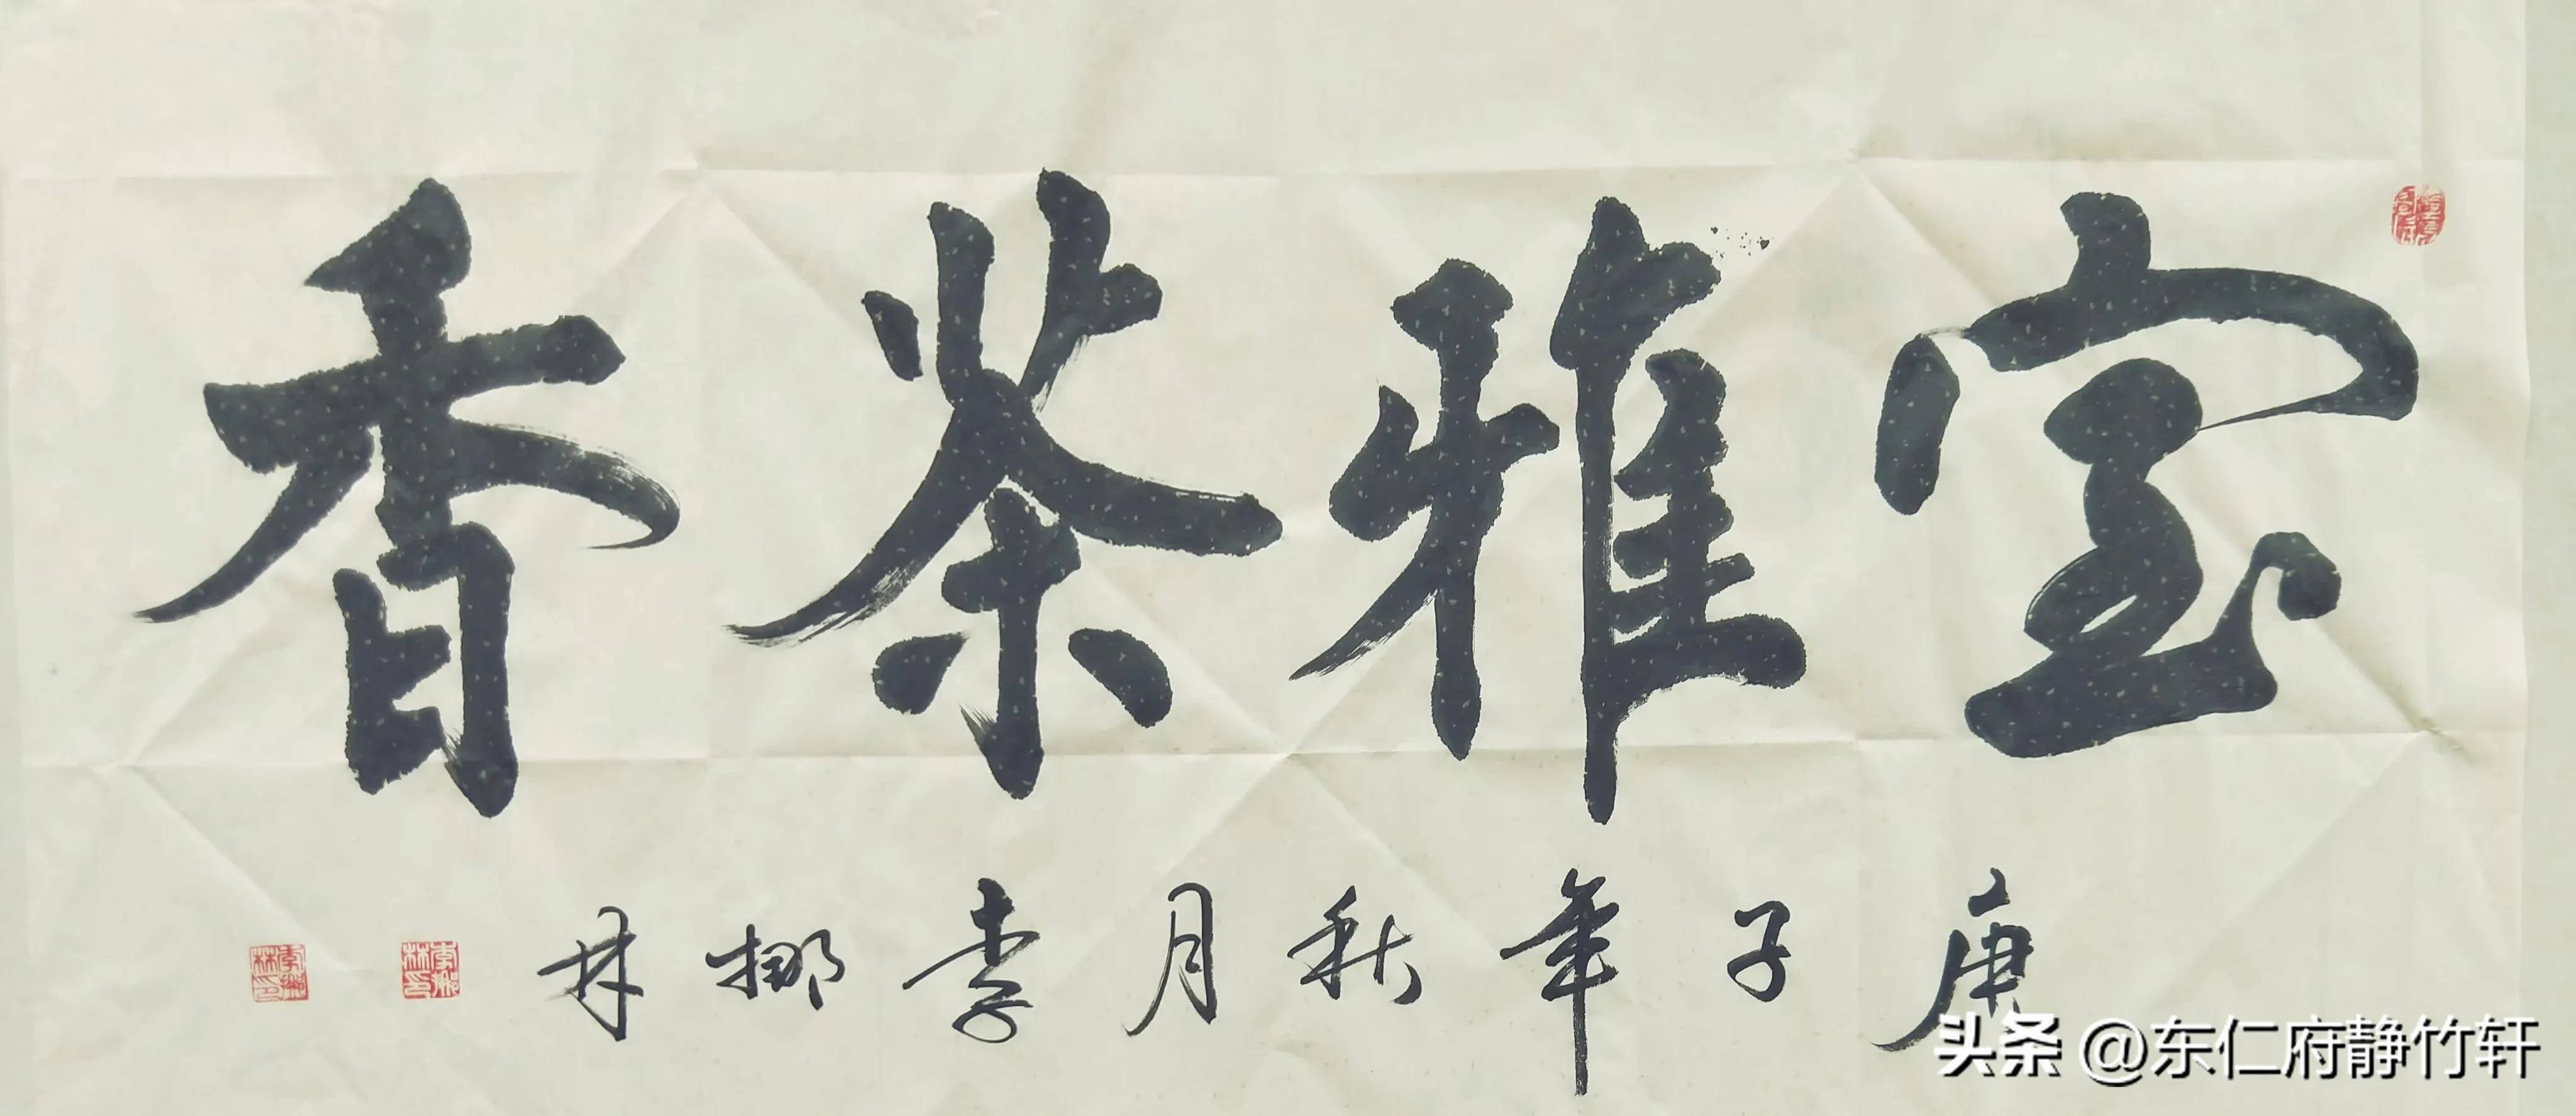 室雅茶香
庚子年秋月李挪林
头条 @东仁府静竹轩